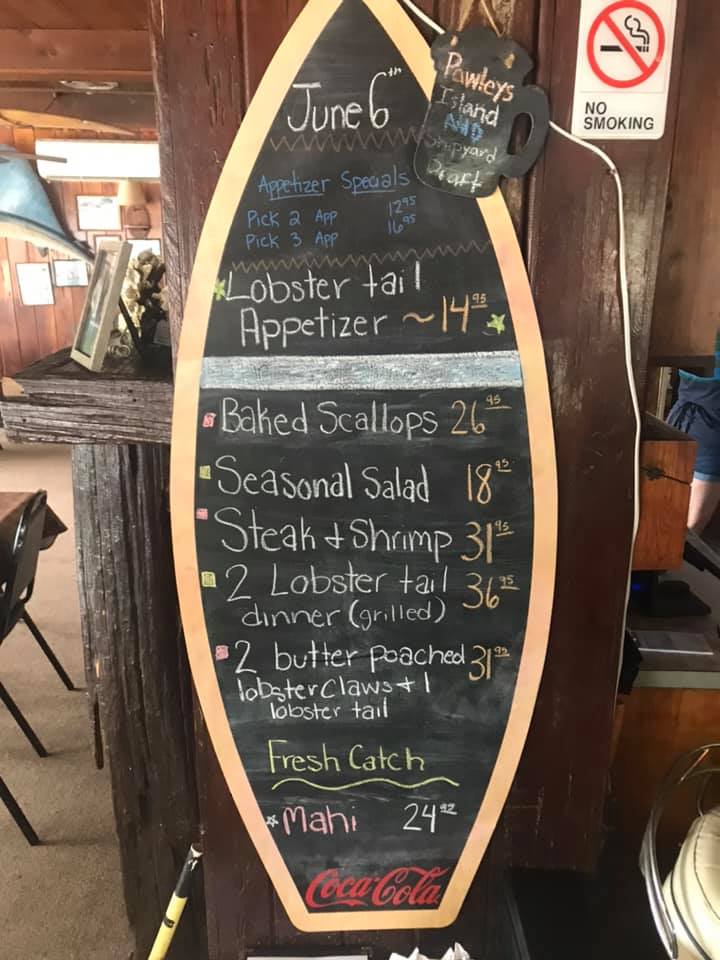 June 6th
Pawleys
Island
AND
Shipyard
Draft
NO
SMOKING
Appetizer Specials
Pick 2 App 12.95
Pick 3 App 16.95
Lobster tail
Appetizer ~ 14.95
Baked Scallops 26.95
Seasonal Salad 18.95
Steak + Shrimp 31.95
2 Lobster tail 36.95
dinner (grilled)
2 butter poached 31.95
lobster claws + 1
lobster tail
Fresh Catch
Mahi
Coca-Cola